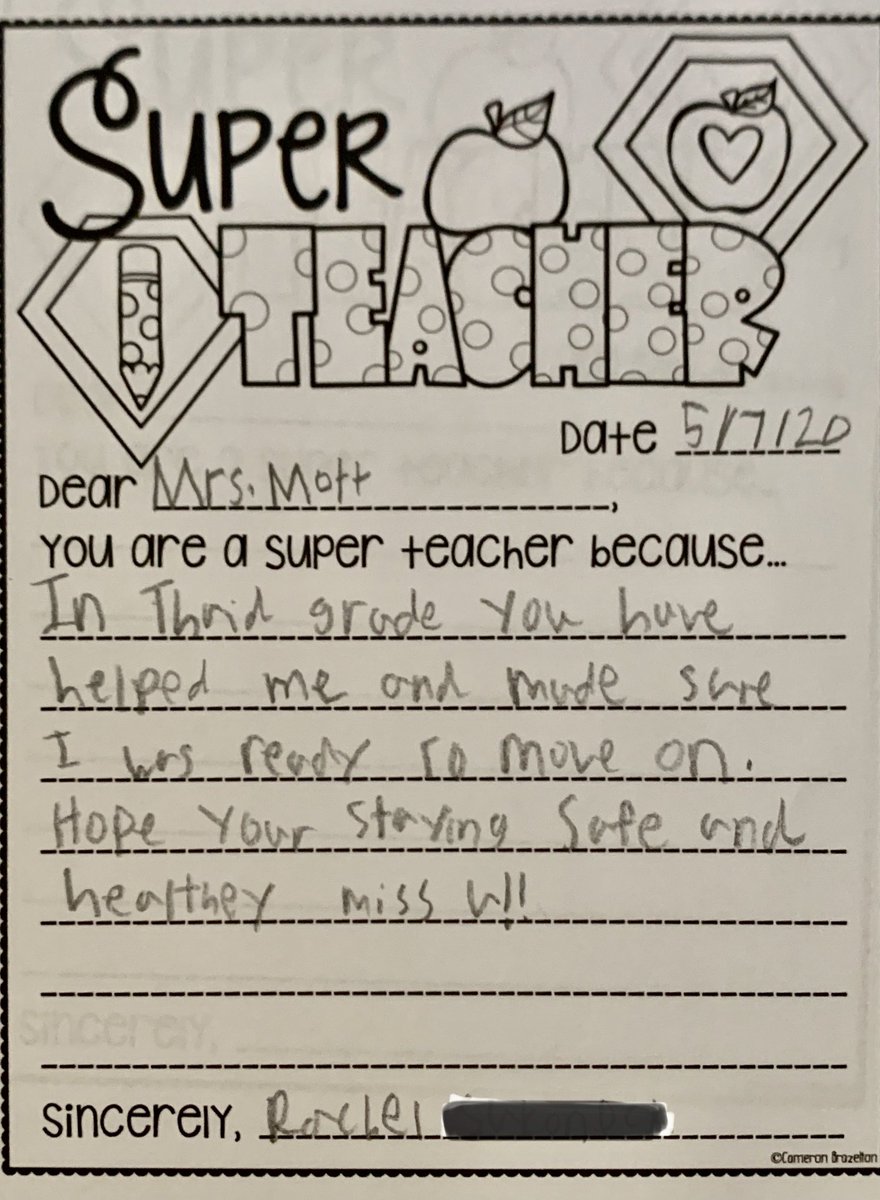 Super
TEACHER
Date 5/7/20
Dear Mrs. Mott,
You are a super teacher because...
In Thrid grade you have
helped me and made sure
I was ready to move on.
Hope your staying Safe and
healthey miss u!!
Sincerely, Rachel
©Cameron Brazelton